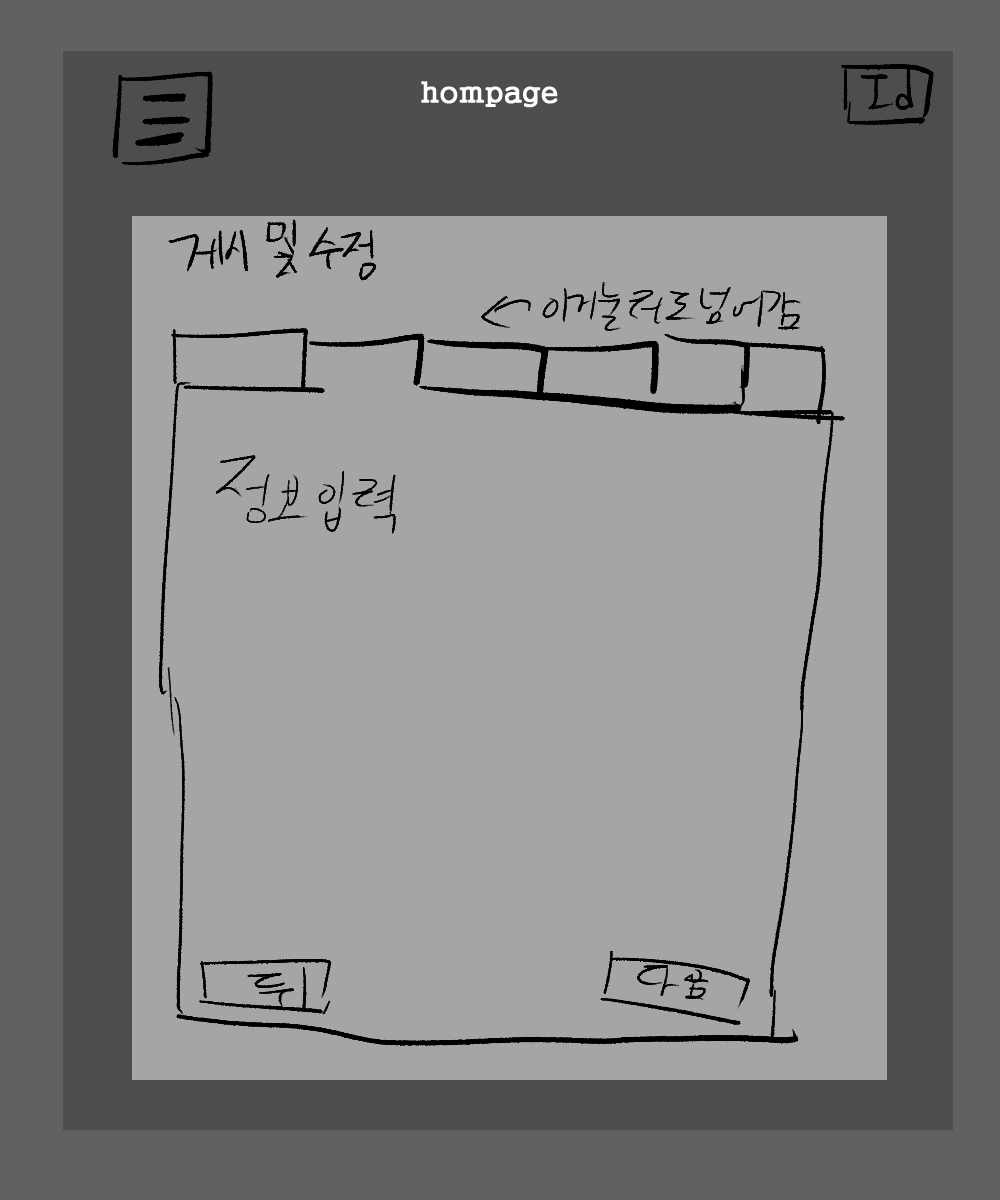 hompage
Id
게시 및 수정
← 이거눌러도넘어감
정보입력
뒤
다음